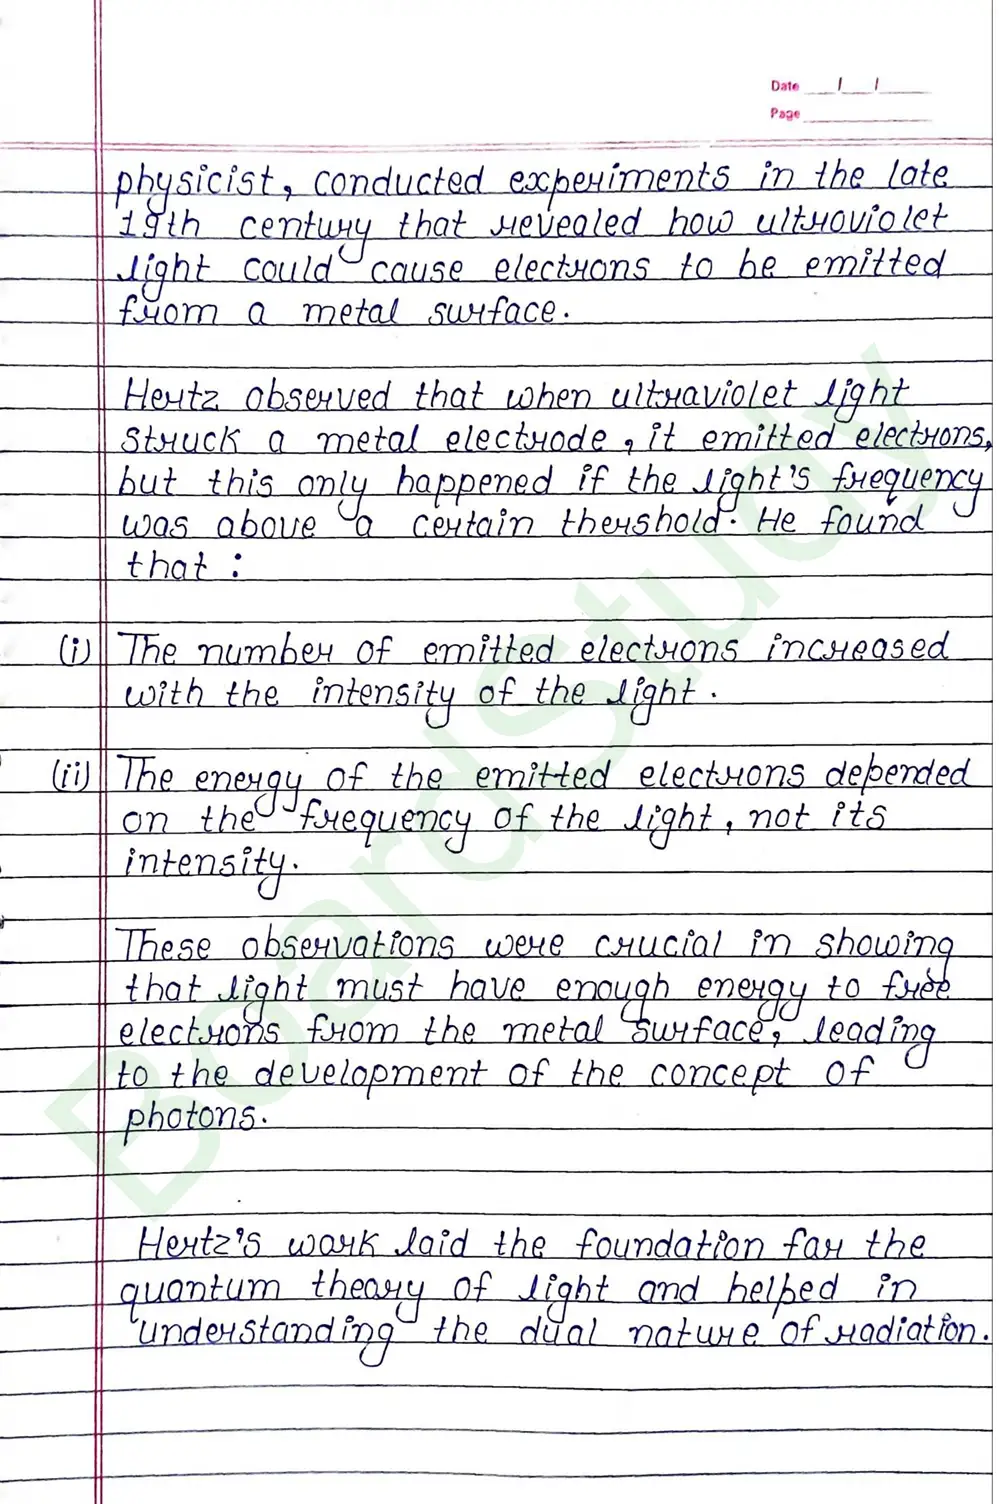 Date __/__/____
Page ________
physicist, conducted experiments in the late
19th century that revealed how ultraviolet
light could cause electrons to be emitted
from a metal surface.
Hertz observed that when ultraviolet light
struck a metal electrode, it emitted electrons,
but this only happened if the light's frequency
was above a certain thershold. He found
that :
(i) The number of emitted electrons increased
with the intensity of the light.
(ii) The energy of the emitted electrons depended
on the frequency of the light, not its
intensity.
These observations were crucial in showing
that light must have enough energy to free
electrons from the metal surface, leading
to the development of the concept of
photons.
Hertz's work laid the foundation for the
quantum theory of light and helped in
understanding the dual nature of radiation.
BoardStudy